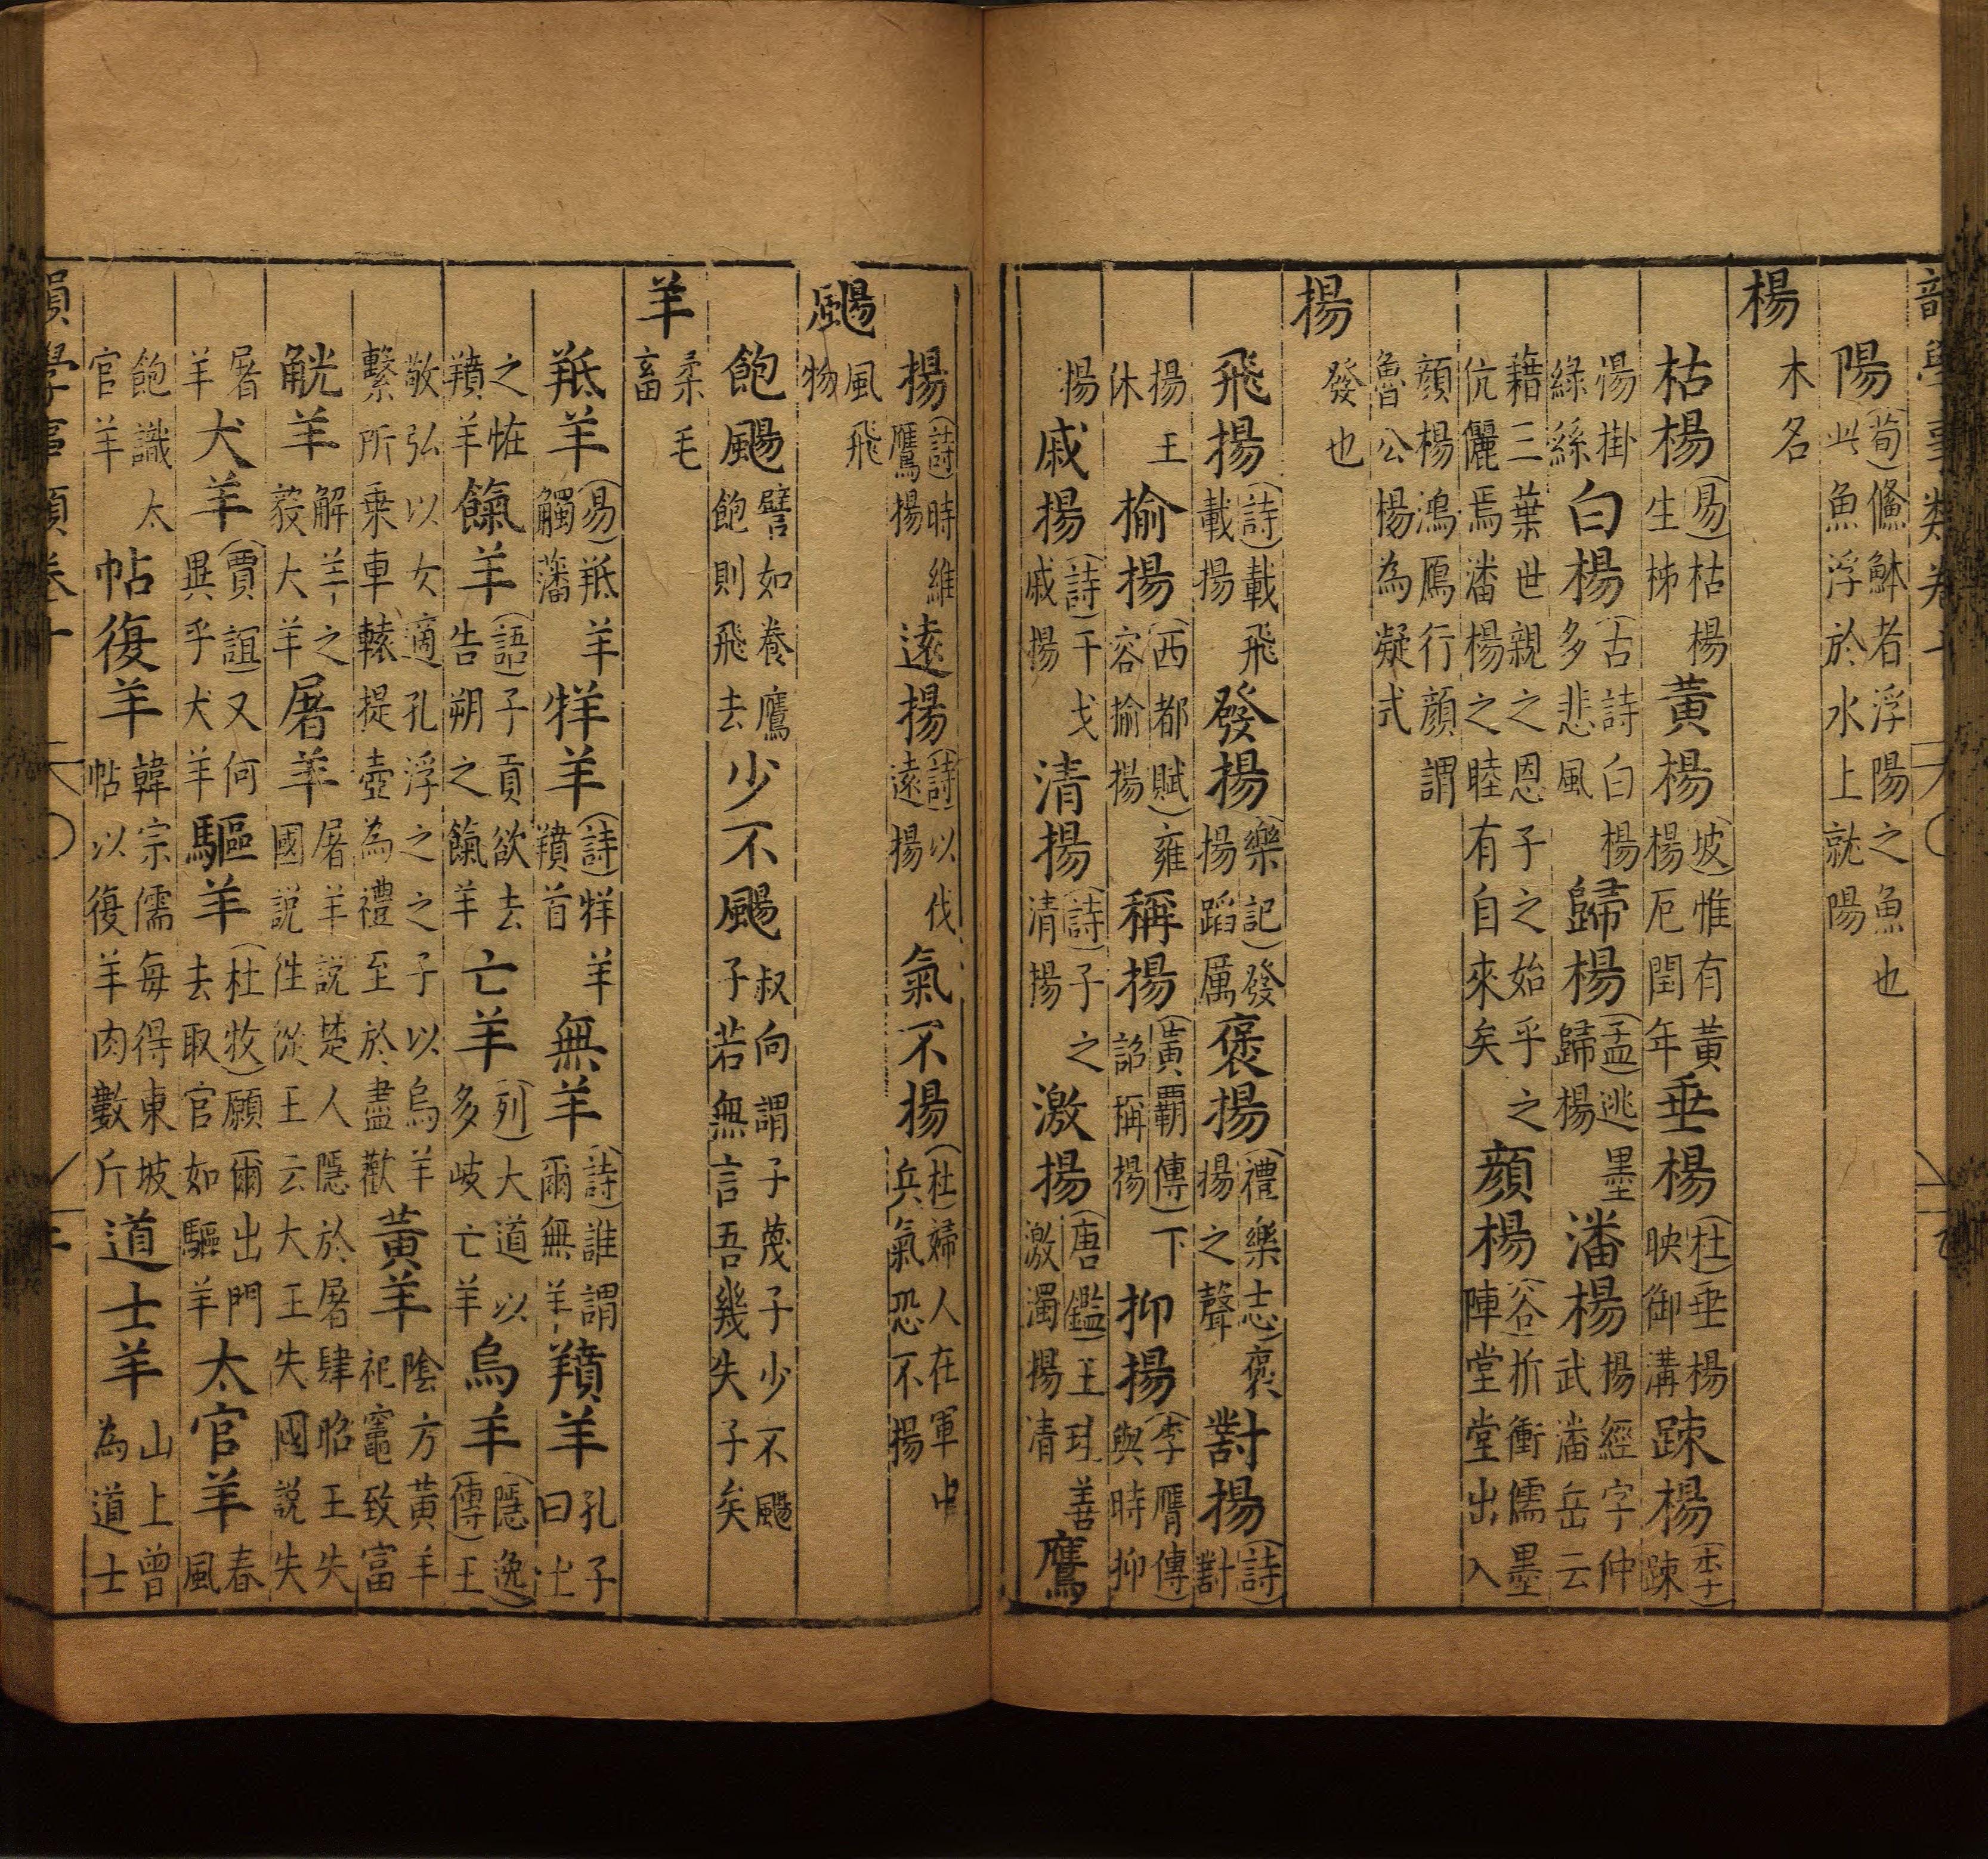 陽(荀)鯈䱁者浮陽之魚也
此魚浮於水上就陽
楊木名
枯楊(易)枯楊生稊黃楊(坡)惟有黃楊厄閏年垂楊(杜)垂楊映御溝踈楊(李)踈
湯掛綠絲白楊(古詩)白楊多悲風歸楊(孟)逃墨歸楊潘楊楊經字仲武潘岳云
藉三葉世親之恩子之始乎之伉儷焉潘楊之睦有自來矣顔楊(谷)折衝儒墨陣堂堂出入
顔楊鴻鴈行顔謂魯公楊為凝式
揚發也
飛揚(詩)載飛載揚發揚(樂記)發揚蹈厲褒揚(禮樂志)褒揚之聲對揚(詩)對
揚王休揄揚(西都賦)雍容揄揚稱揚(黃覇傳)下詔稱揚抑揚(李膺傳)與時抑
揚戚揚(詩)干戈戚揚清揚(詩)子之清揚激揚(唐鑑)王珪善激濁揚清鷹
揚(詩)時維鷹揚遠揚(詩)以伐遠揚氣不揚(杜)婦人在軍中兵氣恐不揚
颺風飛物
飽颺譬如養鷹飽則飛去少不颺叔向謂子蔑子少不颺子若無言吾幾失子矣
羊柔毛畜
羝羊(易)羝羊觸藩牂羊(詩)牂羊羵首無羊(詩)誰謂爾無羊羵羊孔子曰土
之恠羵羊餼羊(語)子貢欲去告朔之餼羊亡羊(列)大道以多岐亡羊烏羊(隱逸傳)王
敬弘以女適孔浮之之子以烏羊繫所乗車轅提壺為禮至於盡歡黃羊陰方黃羊祀竈致富
觥羊解羊之莪大羊屠羊屠羊説楚人隱於屠肆昭王失國説徃從王云大王失國説失
屠羊犬羊(賈誼)又何異乎犬羊驅羊(杜牧)願爾出門去取官如驅羊太官羊春風
飽識太官羊帖復羊韓宗儒每得東坡帖以復羊肉數斤道士羊山上曾為道士